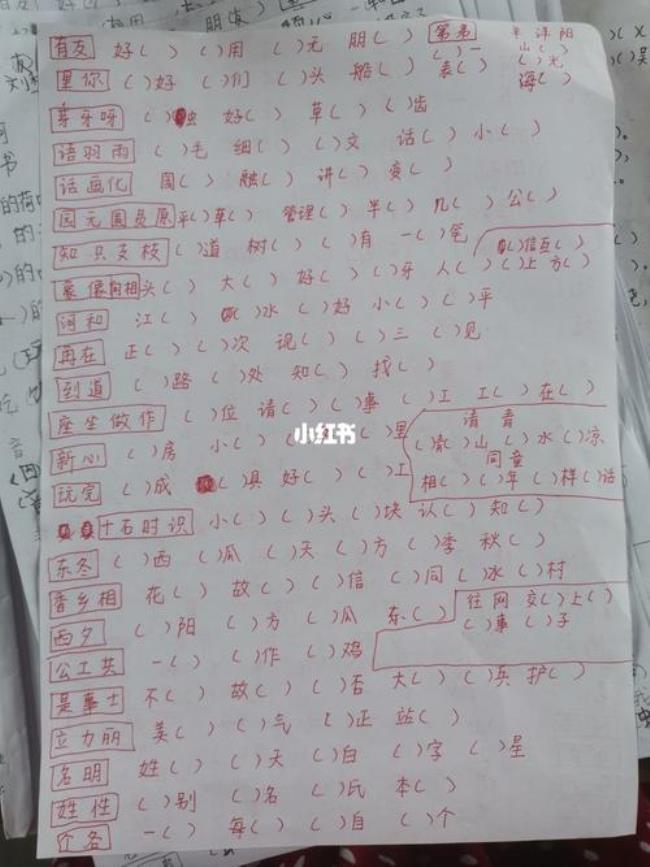 有友 好( ) ( )用 ( )无 朋( ) 第弟 ( )一
里你 ( )好 ( )们 ( )头 船( ) 表( ) 海( )
芽牙呀 ( )虫 好( ) 草( ) ( )齿
语羽雨 ( )毛 细( ) ( )文 话( ) 小( )
话画化 图( ) 融( ) 讲( ) 变( )
园元圆员原 平( )草( ) 管理( ) 半( ) 几( ) 公( )
知识支枝 ( )道 树( ) ( )有 一( )笔
( )信互( )
象像向相 头( ) 大( ) 好( ) ( )牙 人( ) ( )上 方( )
河和 江( ) ( )水 ( )好 小( ) ( )平
再在 正( ) ( )次 说( ) ( )三 ( )见
到道 ( )路 ( )处 知( ) 找( )
座坐做作 ( )位 请( ) ( )事 ( )工 工( ) 在( )
新心 ( )房 小( ) ( )里
小红书
清青
( )山 ( )水 ( )凉
玩完 ( )成 ( )具 好( ) ( )工
同童
相( ) ( )年 ( )样 ( )话
十石时识 小( ) ( )头 ( )块 认( ) 知( )
东冬 ( )西 ( )瓜 ( )天 ( )方 ( )季 秋( )
香乡相 花( ) 故( ) ( )信 ( )同 ( )水 ( )村
西夕 ( )阳 ( )方 ( )瓜 东( )
往网 交( ) 上( )
( )事 ( )子
公工共 一( ) ( )作 ( )鸡
是事士 不( ) 故( ) ( )否 大( ) ( )兵 护( )
立力丽 美( ) ( )气 ( )正 站( )
名明 姓( ) ( )天 ( )白 ( )字 ( )星
姓性 ( )别 ( )名 ( )氏 本( )
个各 一( ) 每( ) ( )自 ( )个